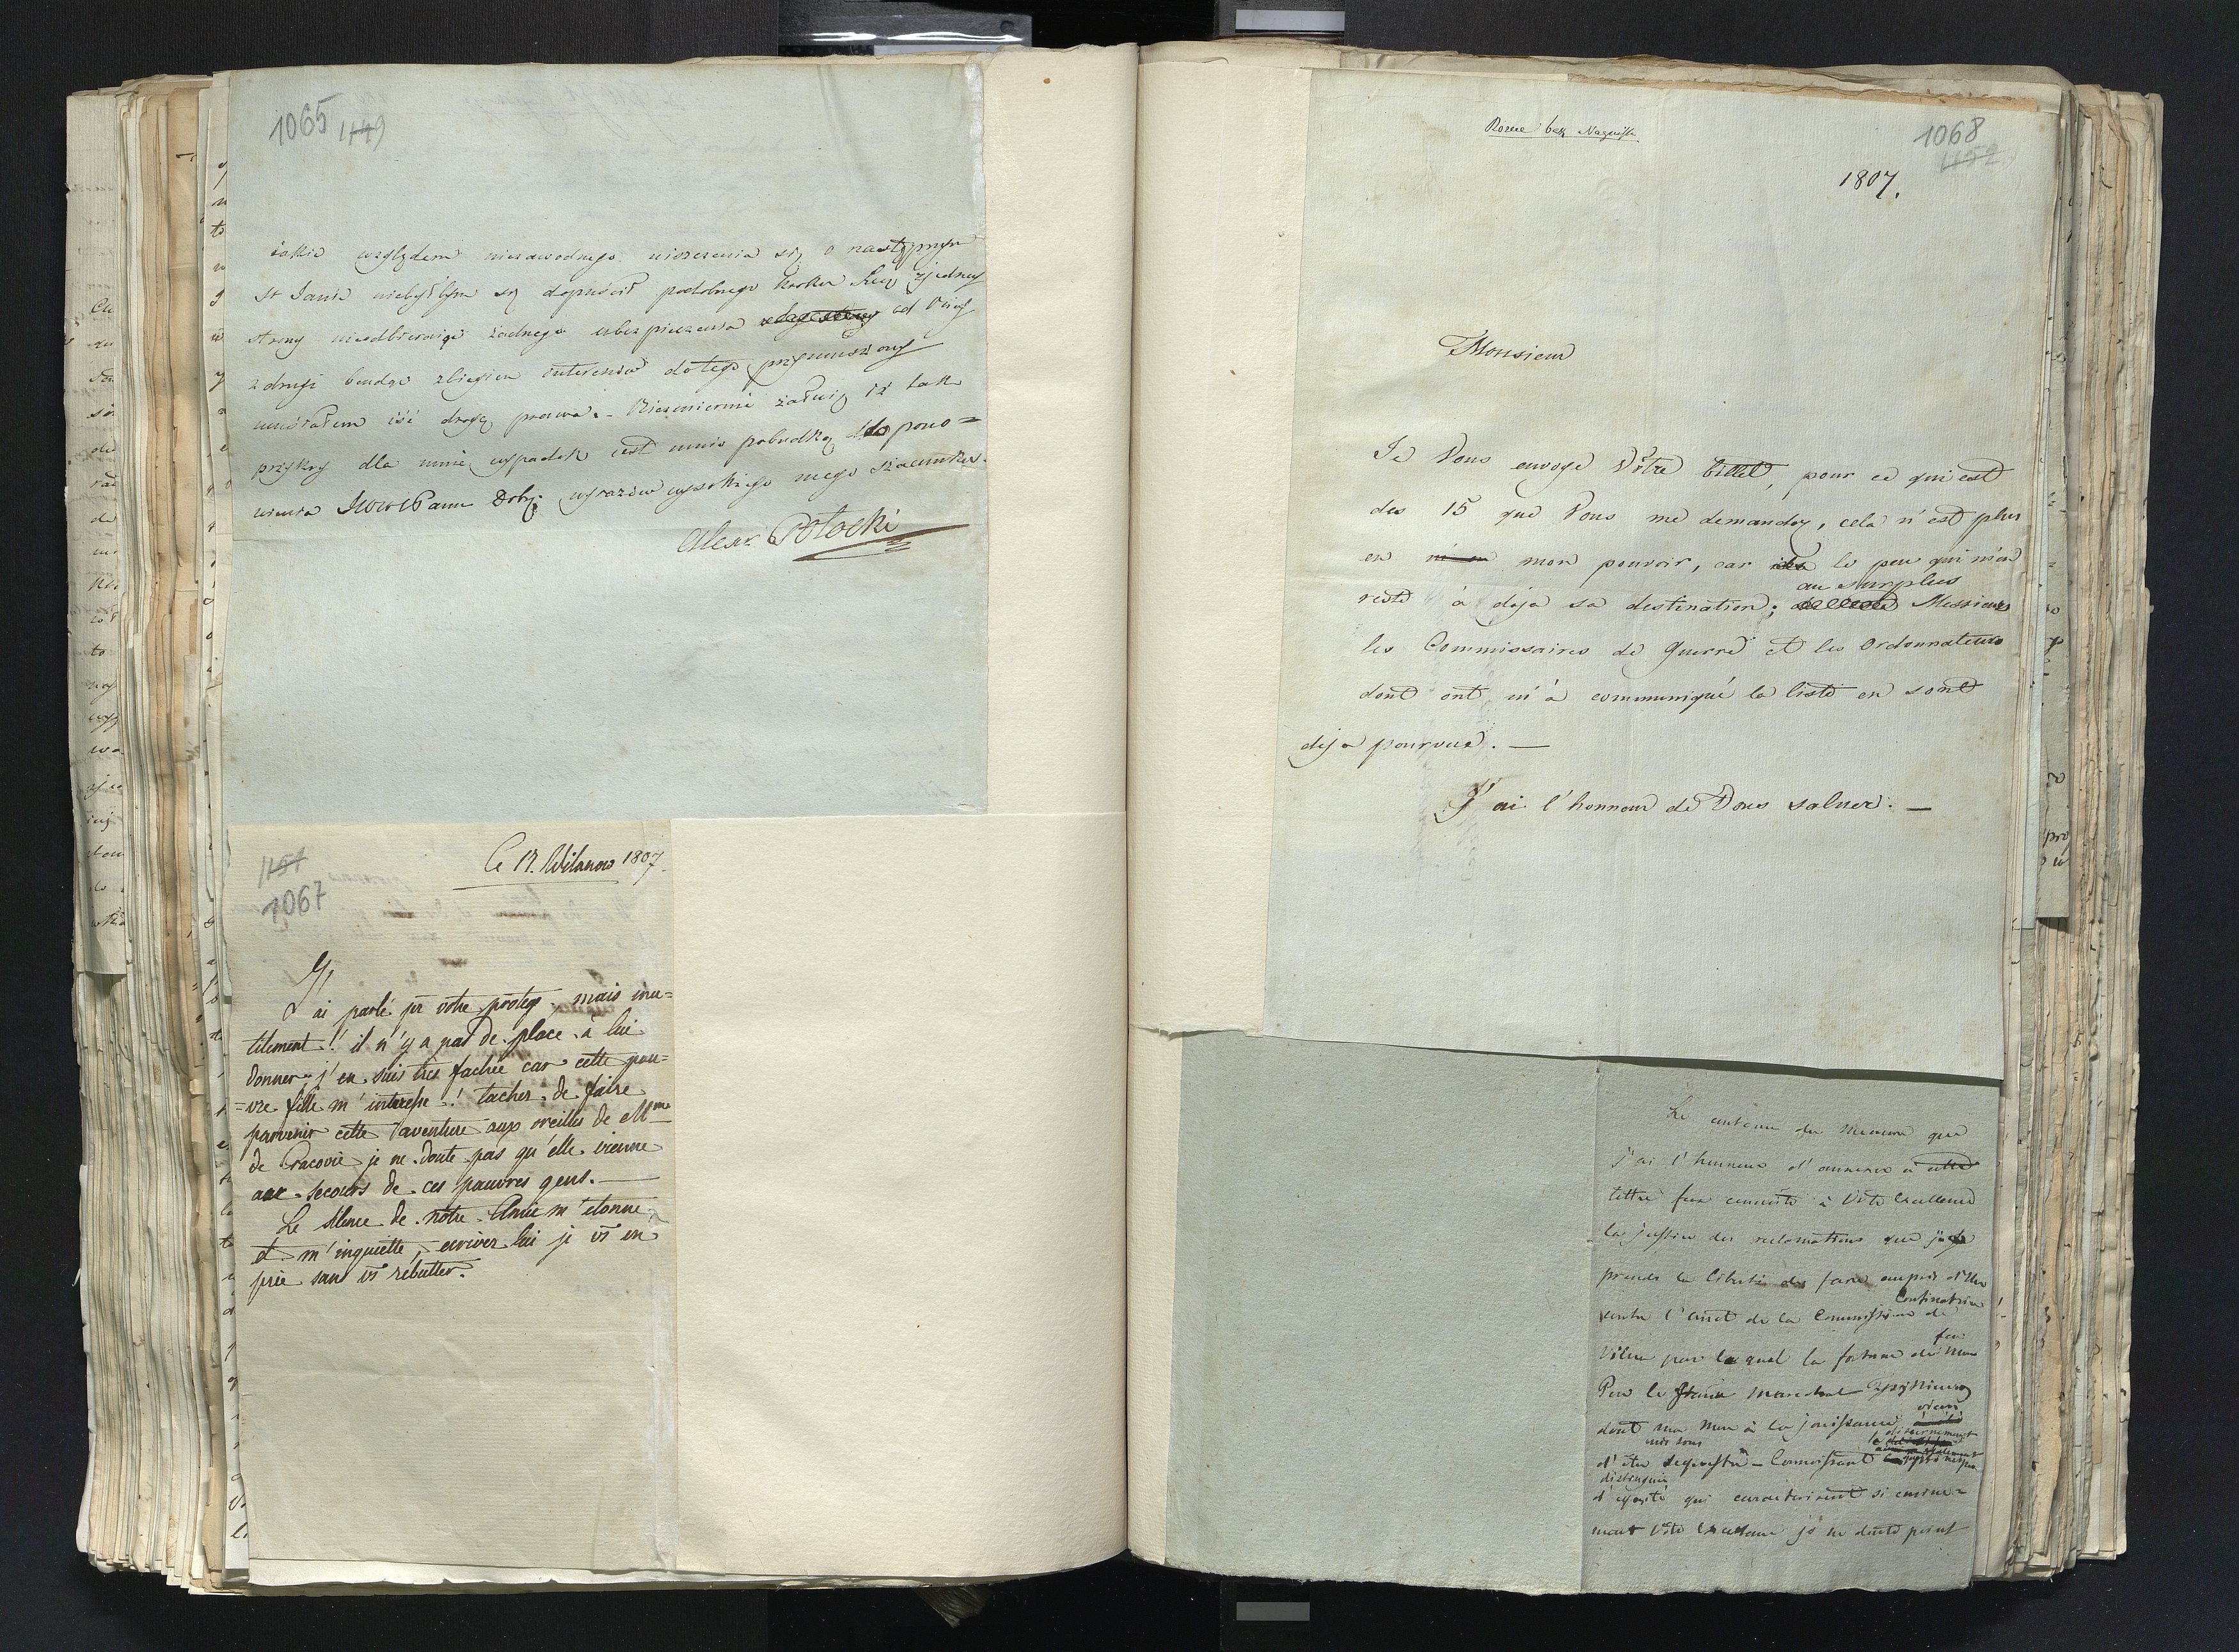 1065 1149
iakie względem niezawodnego uiszczenia się o następnym
St Janie niebyłbym się dopuścił podobnego kroku lecz z jedney
strony nieodbieraiąc żadnego ubezpieczenia od Niey
z drugi bendąc zbiegiem interesów do tego przymuszony
musiałem iść drogą prawa. Niezmiernie żałuię iż tak
przykry dla mnie wypadek iest mnie pobudką do pono=
wienia JWWPanu Dobr: wyrazów wysokiego mego szacunku.
Alexr Potocki
1151
1067
Ce 17. Wilanow 1807.
J'ai parlé pr votre protegé mais inu=
tilement! il n'y a pas de place à lui
donner j'en suis tres fachée car cette pau=
=vre fille m'interesse! tachez de faire
parvenir cette aventure aux oreilles de Mme
de Cracovie je ne doute pas qu'elle vienne
aux secours de ces pauvres gens. —
Le silence de notre Amie m'étonne
et m'inquiette, ecrivez lui je vs en
prie sans vs rebutter.
Rożne bez Nazwisk
1068
1152
1807.
Monsieur
Je Vous envoye Vôtre billet, pour ce qui est
des 15 que Vous me demandez, cela n'est plus
en mon pouvoir, car le peu qui m'en
au surplus
reste à deja sa destination; Messieurs
les Commissaires de Guerre et les Ordonnateurs
dont ont m'à communiqué la liste en sont
deja pourvus. —
J'ai l'honneur de Vous saluer. —
Le contenu du Memoire que
j'ai l'honneur d'annexer à cette
lettre fera connoitre à Votre Excellence
la justice des reclamations que je
prends la liberté de faire auprès d'Elle
Confiscation
contre l'arret de la Commission de
feu
Vilna par lequel la fortune de mon
Pere le Marechal
vient
dont ma Mere à la jouissance
discernement
mis sous
d'être sequestre – Connoissant
distingués
d'equité qui caracterisent si emine=
ment Votre Excellence je ne doute point